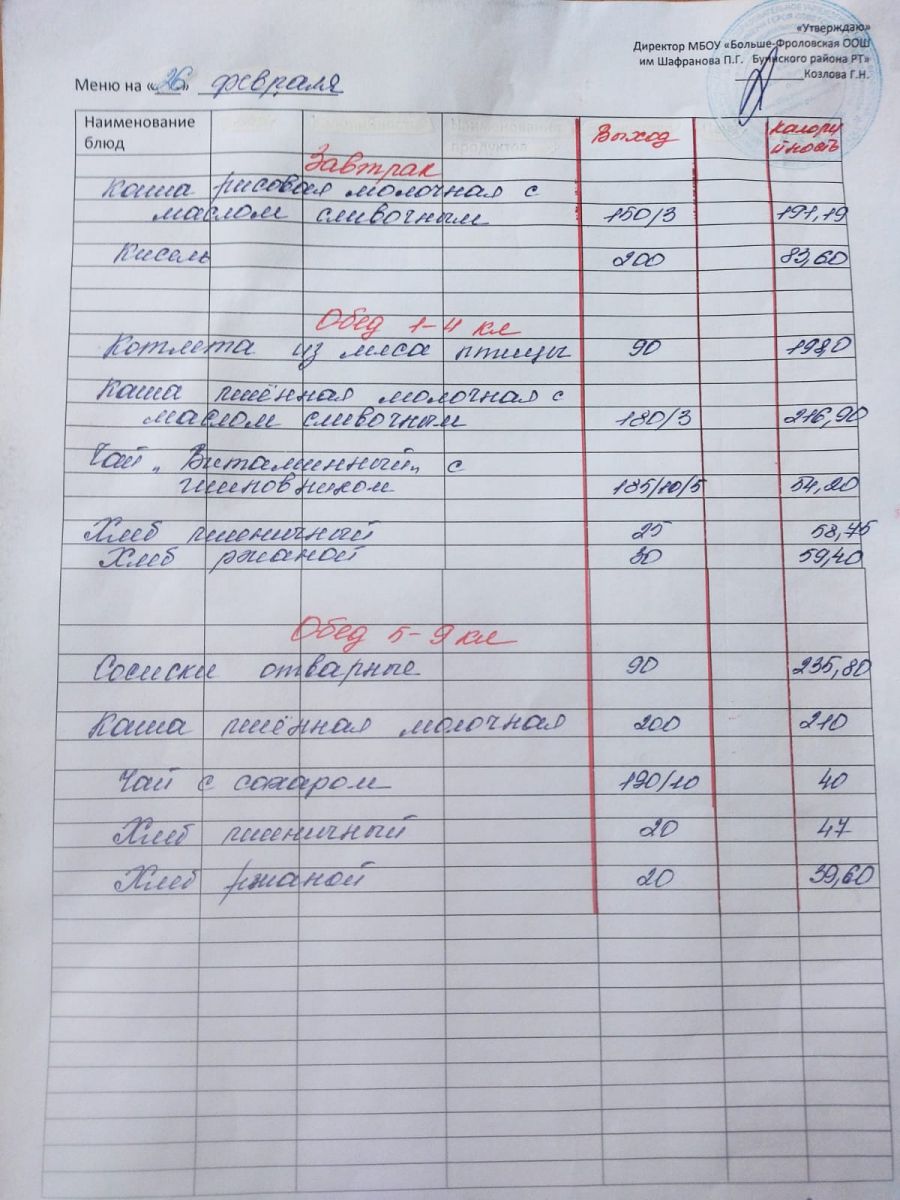 «Утверждаю»
Директор МБОУ «Больше-Фроловская ООШ
им Шафранова П.Г. Буинского района РТ»
Козлова Г.Н.
Меню на «26» февраля
Наименование блюд Выход калорийность
Завтрак
Каша рисовая молочная с
маслом сливочным 150/3 191,19
Кисель 200 83,60
Обед 1-4 кл
Котлета из мяса птицы 90 198,0
Каша пшённая молочная с
маслом сливочным 180/3 216,90
Чай „Витаминный„ с
шиповником 185/10/5 54,20
Хлеб пшеничный 25 58,75
Хлеб ржаной 30 59,40
Обед 5-9 кл
Сосиски отварные 90 235,80
Каша пшённая молочная 200 210
Чай с сахаром 190/10 40
Хлеб пшеничный 20 47
Хлеб ржаной 20 39,60